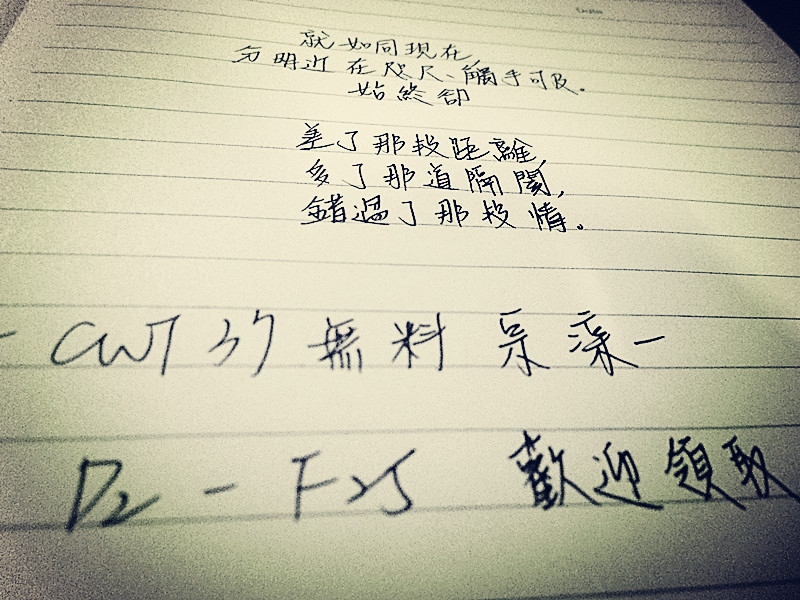 就如同現在
分明近在咫尺、觸手可及.
始終卻
差了那段距離,
多了那道隔閡,
錯過了那段情。
- CWT 37 無料 呆深 -
D2 - F25 歡迎領取